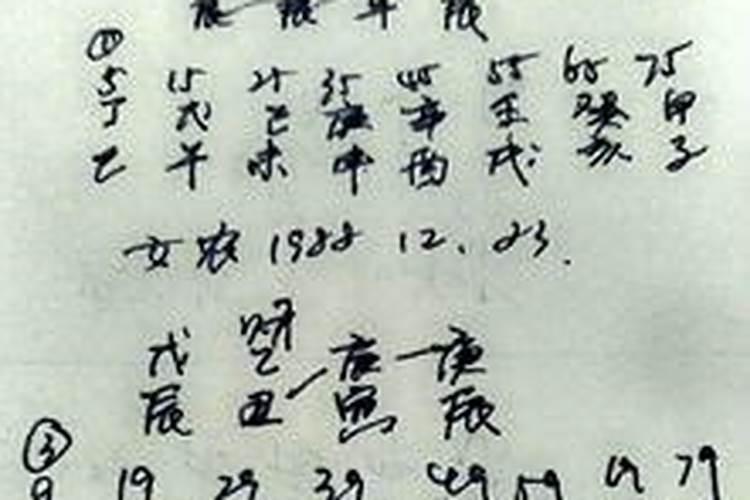 ①
5 15 25 35 45 55 65 75
丁 戊 己 庚 辛 壬 癸 甲
巳 午 未 申 酉 戌 亥 子
女 农 1988 12. 23.
戊 乙 庚 — 庚
辰 丑 寅 辰
③
9 19 29 39 49 59 69 79